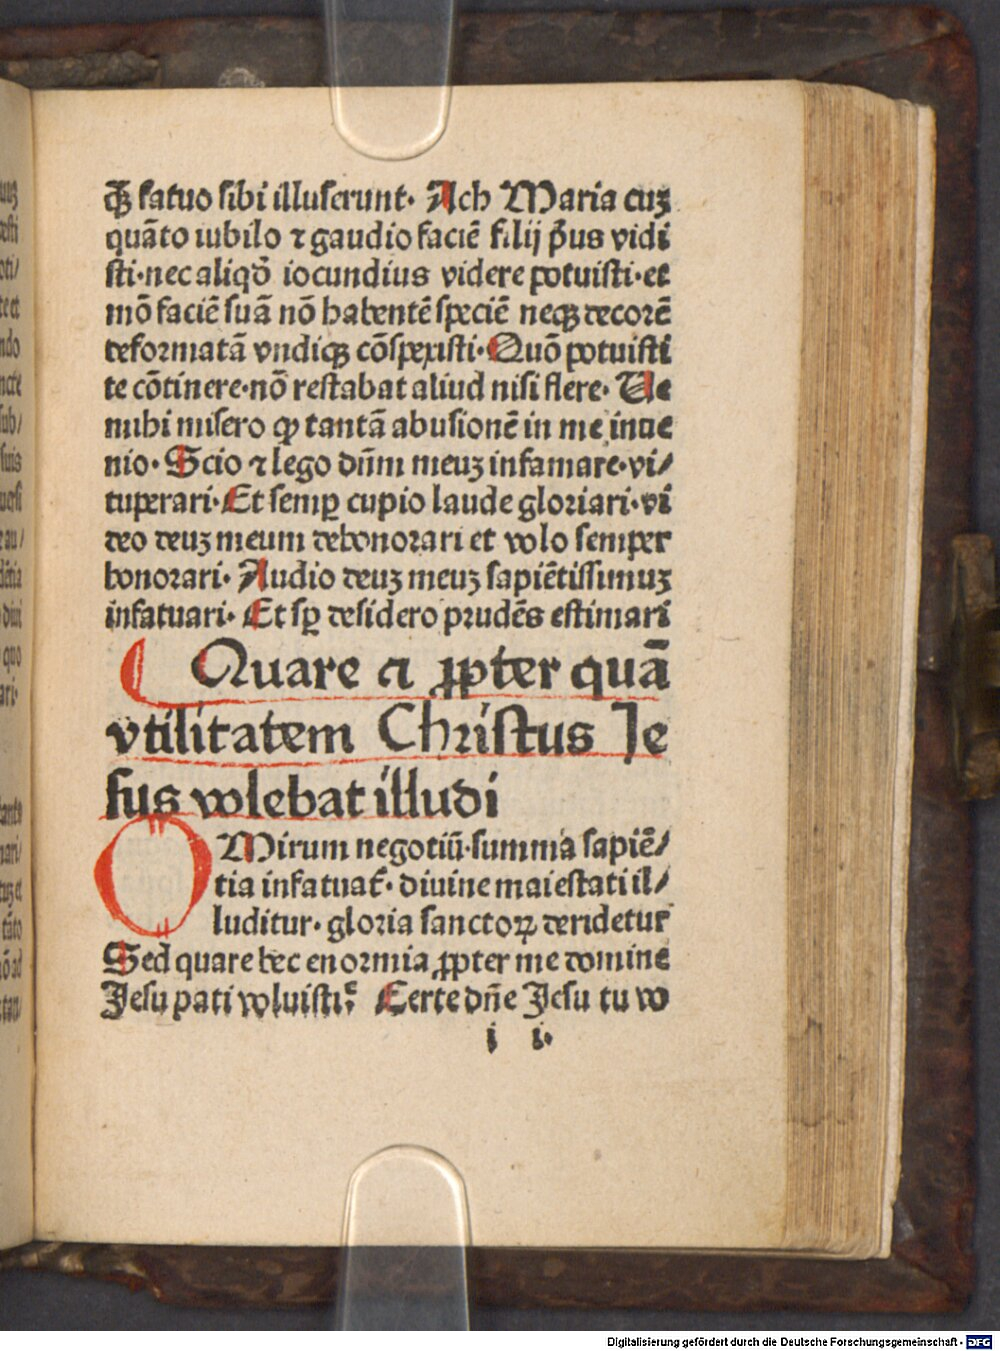 q̄ꝫ fatuo sibi illuserunt. Ach Maria cuꝫ
quāto iubilo ⁊ gaudio faciē filij p̄us vidi
sti·nec aliqd̄ iocundius videre potuisti·et
mō faciē suā nō habentē speciē neqꝫ decorē
deformatā vndiqꝫ cōspexisti·Quō potuisti
te cōtinere·nō restabat aliud nisi flere· Ue
mihi misero ꝙ tantā abusionē in me inue
nio· Scio ⁊ lego dn̄m meuꝫ infamare·vi/
tuperari·Et semꝑ cupio laude gloriari·vi
deo deuꝫ meum dehonorari et volo semper
honorari· Audio deuꝫ meuꝫ sapiētissimuꝫ
infatuari· Et sꝑ desidero prudēs estimari
Quare ⁊ ꝓpter quā
vtilitatem Christus Je
sus volebat illudi
O Mirum negotiū·summa sapiē/
tia infatuat᷑· diuine maiestati il/
luditur· gloria sanctoꝝ deridetur
Sed quare hec enormia ꝓpter me domine
Jesu pati voluisti? Certe dn̄e Jesu tu vo
i i·
Digitalisierung gefördert durch die Deutsche Forschungsgemeinschaft - DFG